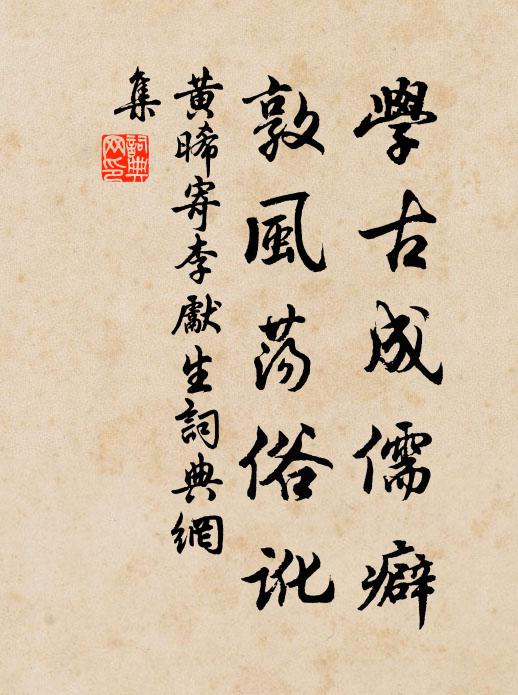 學古成儒癖
敦風荡俗訛
黃晞寄李獻生詞典網
集
詞典
网印